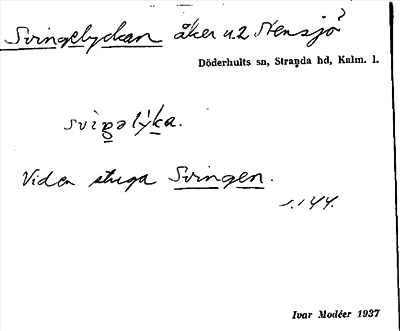 Svingelyckan åker u.2 Stensjö?
Döderhults sn, Stranda hd, Kalm. l.
sviŋəlỳka.
Vid en stuga Svingen.
s. 144.
Ivar Modéer 1937